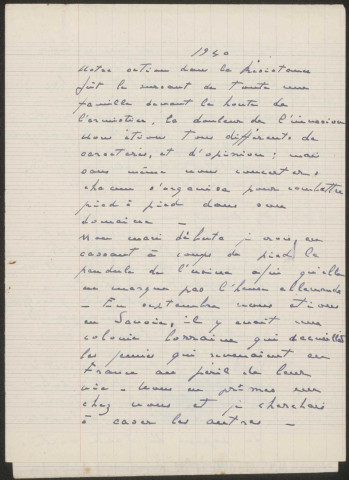 1940
Notre action dans la Résistance
fût le sursaut de toute une
famille devant la honte de
l'armistice, la douleur de l'invasion
Nous étions tous différents de
caractère, et d'opinion ; mais
sans même nous concerter,
chacun s'organisa pour combattre
pied à pied dans son
domaine _
Mon mari débuta je crois, en
cassant à coups de pied la
pendule de l'usine afin qu'elle
ne marque pas l'heure allemande
_ En septembre nous étions
en Savoie, il y avait une
colonie lorraine qui accueillait
les jeunes qui revenaient en
France au péril de leur
vie _ Nous en prîmes un
chez nous et je cherchais
à caser les autres _